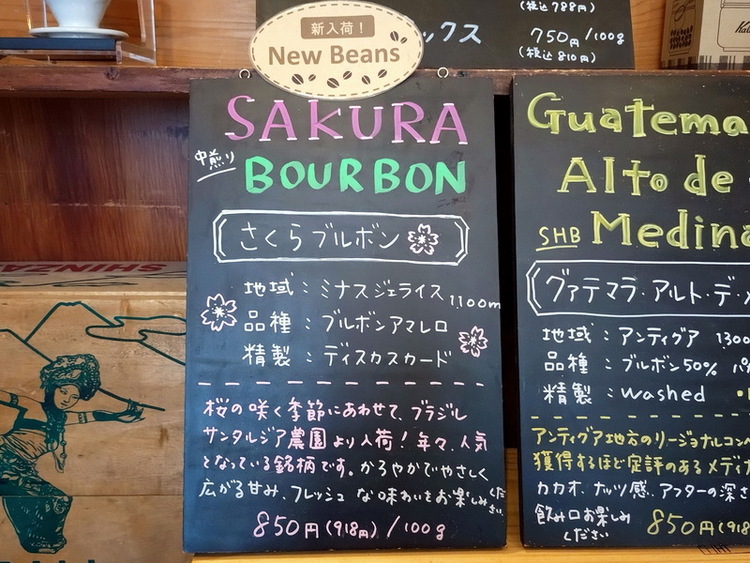 (税込788円)
ックス 750円/100g
(税込810円)
新入荷!
New Beans
SAKURA
中煎り
BOURBON
さくらブルボン
地域:ミナスジェライス 1,100m
品種:ブルボンアマレロ
精製:ディスカスカード
桜の咲く季節にあわせて、ブラジル
サンタルジア農園より入荷!年々、人気
となっている銘柄です。かろやかでやさしく
広がる甘み、フレッシュな味わいをお楽しみください
850円(918円)/100g
Guatema
Alto de
SHB Medina
グァテマラ・アルト・デ・
地域:アンティグア 1300
品種:ブルボン50%
精製:washed
アンティグア地方のリージョナルコン
獲得するほど定評のあるメディ
カカオ、ナッツ感、アフターの深さ
飲み口お楽しみ
ください
850円(918
SHINZA